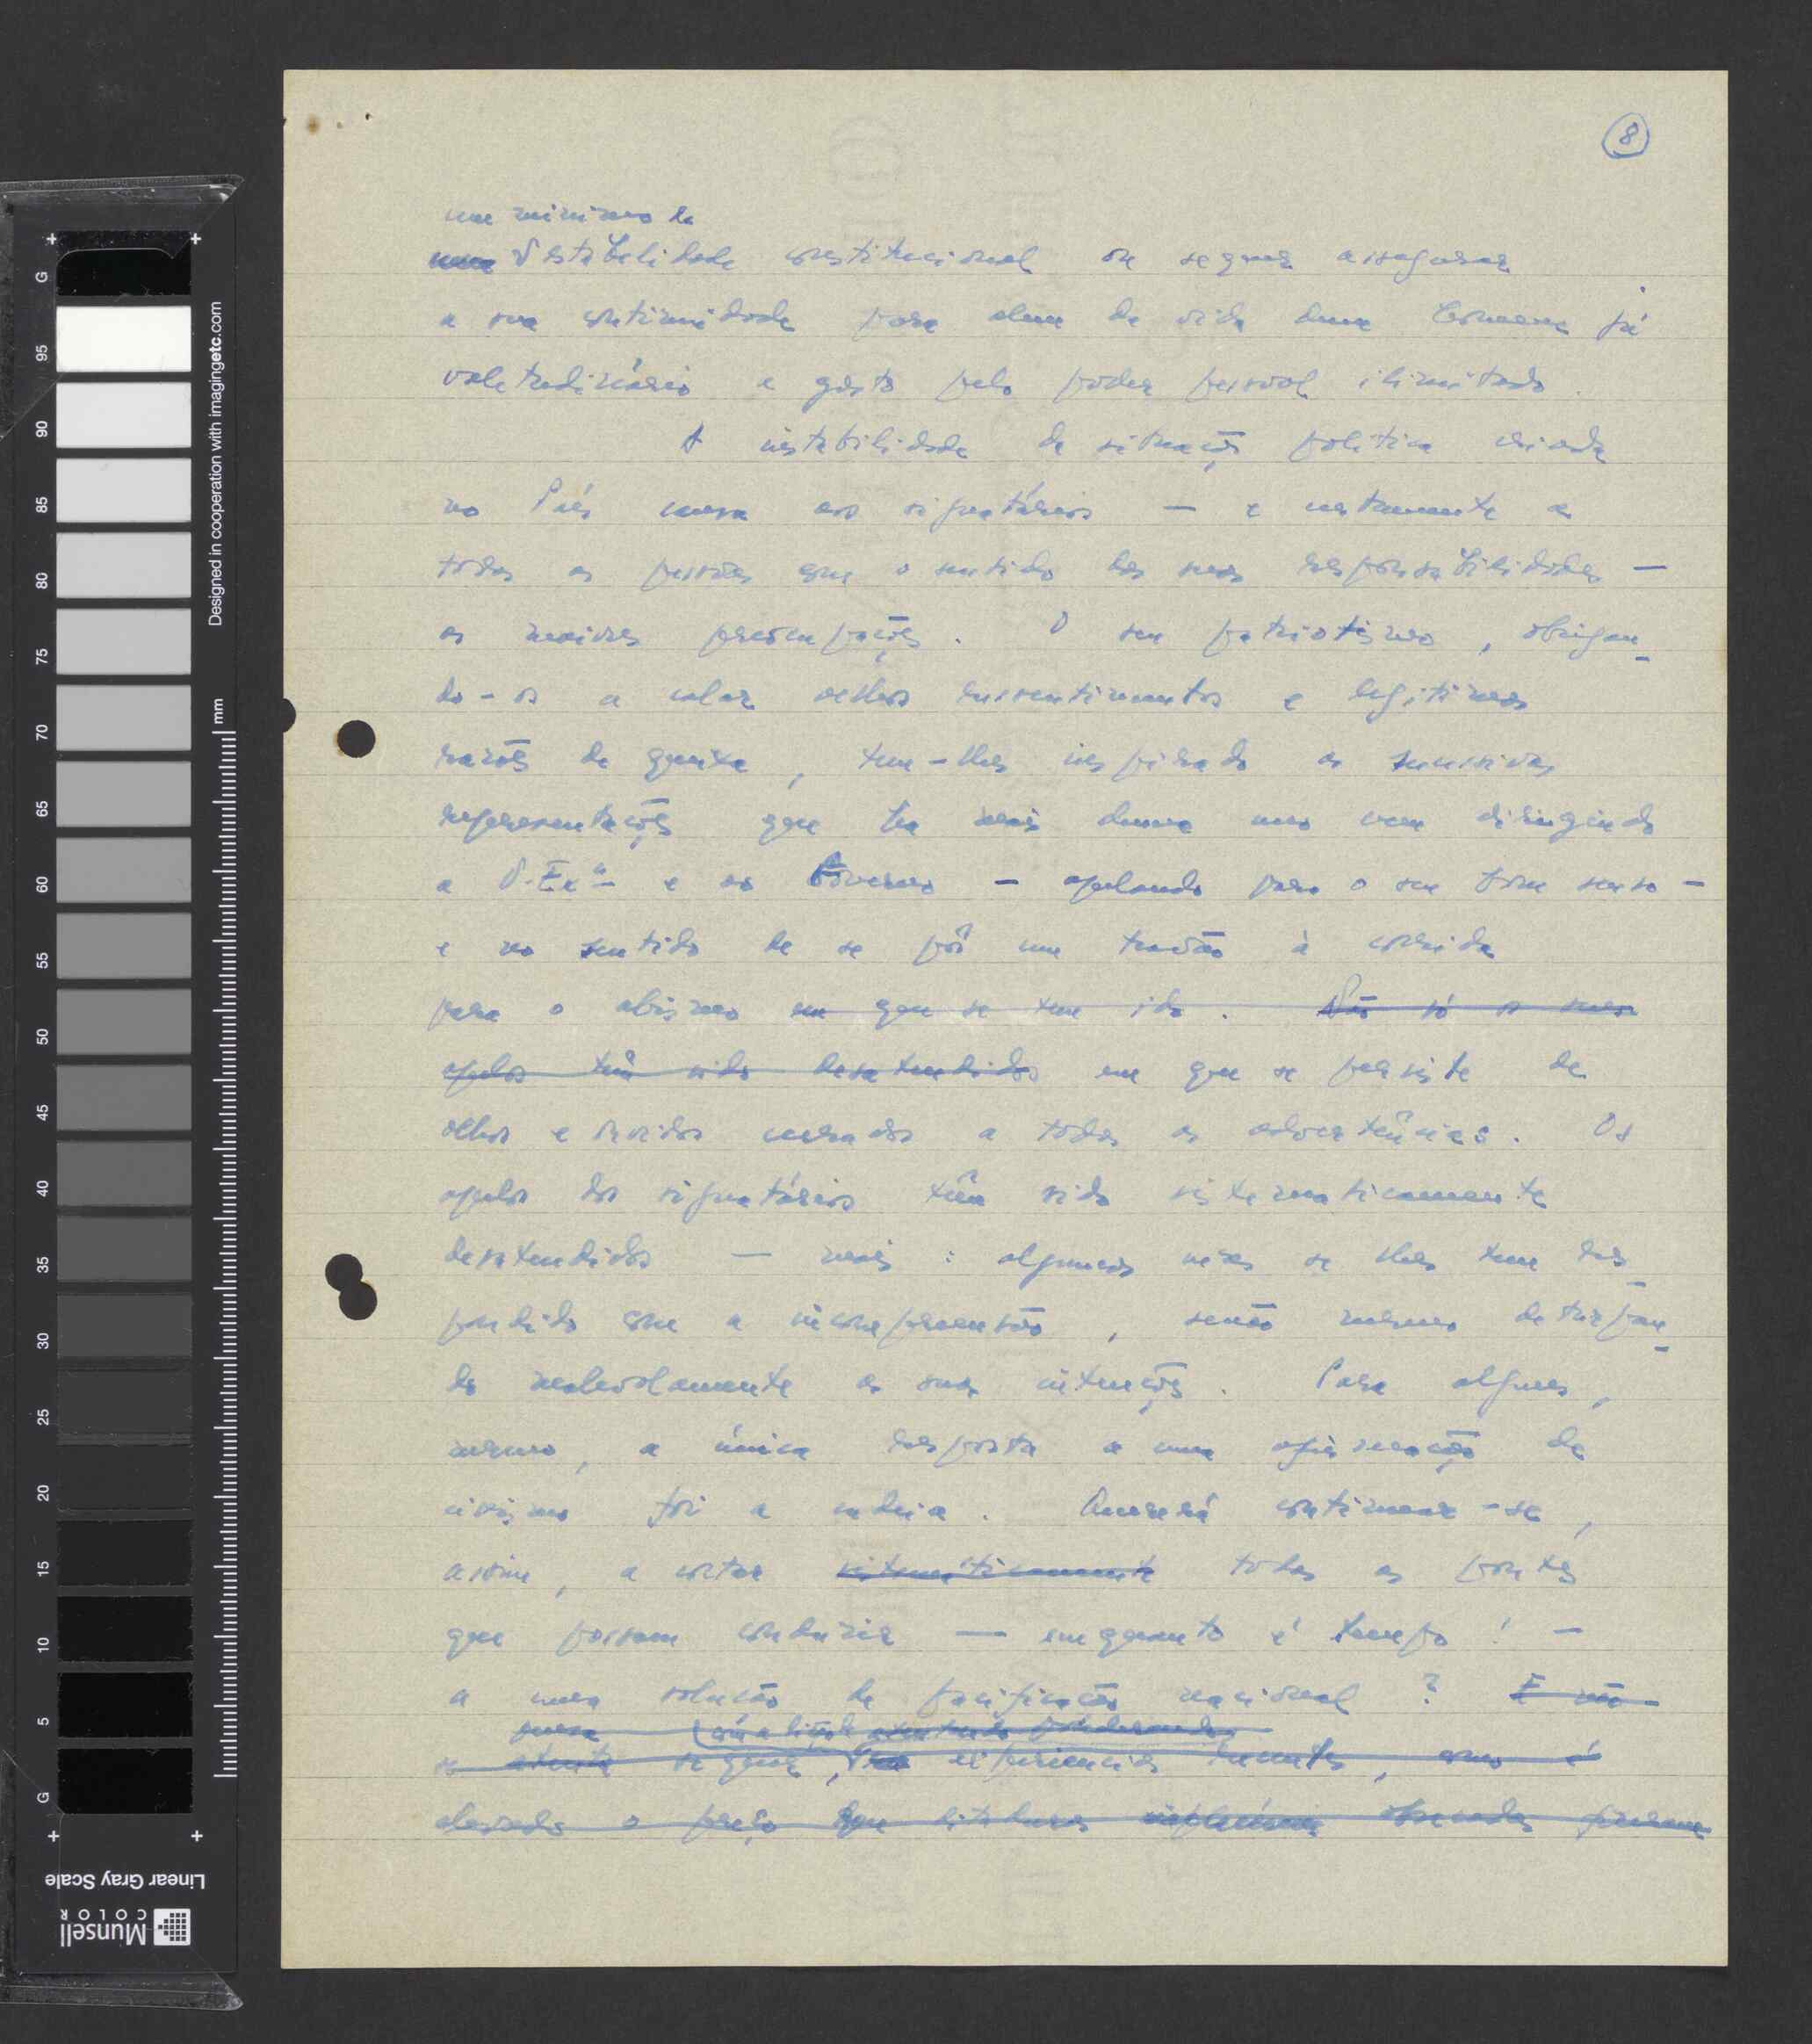 8
um mínimo de
uma estabilidade constitucional ou sequer assegurar
a sua continuidade para alem da vida dum homem já
valetudinário e gasto pelo poder pessoal ilimitado.
A instabilidade da situação politica criada
no País causa aos signatários — e certamente a
todas as pessoas com o sentido das suas responsabilidades —
as maiores preocupações. O seu patriotismo, obrigan-
do-os a calar velhos ressentimentos e legitimas
razões de queixa, tem-lhes inspirado as sucessivas
representações que ha mais dum ano vem dirigindo
a V. Exª e ao Governo — apelando para o seu bom senso —
e no sentido de se pôr um travão à corrida
para o abismo em que se tem ido. Não só os seus
apelos têm sido desatendidos em que se persiste de
olhos e ouvidos cerrados a todas as advertências. Os
apelos dos signatários têm sido sistematicamente
desatendidos — mais: algumas vezes se lhes tem res-
pondido com a incompreensão, senão mesmo deturpan-
do malevolamente as suas intenções. Para alguns,
mesmo, a única resposta a uma afirmação de
civismo foi a cadeia. Quererá continuar-se,
assim, a cortar sistematicamente todas as pontes
que possam conduzir — enquanto é tempo! —
a uma solução de pacificação nacional? E não
se sequer, experiências recentes, como é
elevado o preço que ditaduras obcecadas
Designed in cooperation with imagingetc.com
mm
G
95
90
85
80
75
70
65
60
55
50
45
40
35
30
25
20
15
10
5
G
Linear Gray Scale
Munsell
COLOR